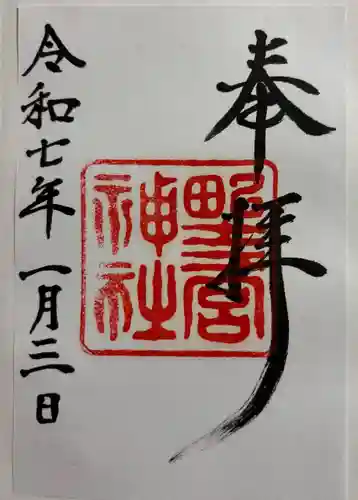 奉拝
野宮神社
令和七年一月三日